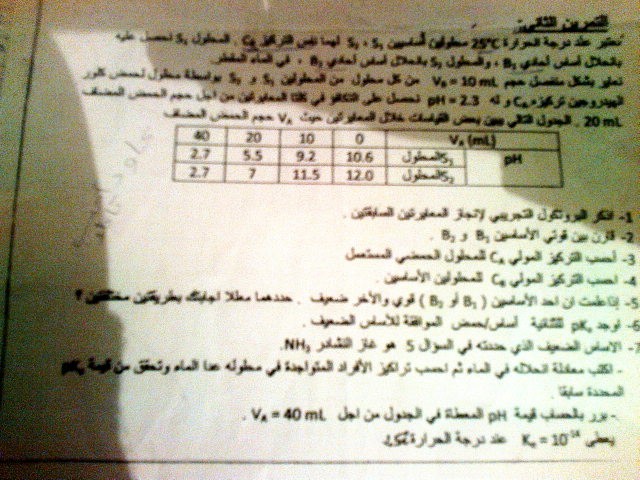 التمرين الثاني:
نعتبر عند درجة الحرارة 25°C محلولين أساسيين S₁ ، S₂ لهما نفس التركيز C_B . المحلول S₁ نحصل عليه
بانحلال أساس أحادي B₁ ، والمحلول S₂ بانحلال أساس أحادي B₂ ، في الماء المقطر.
نعاير بشكل منفصل حجم V_B = 10 mL من كل محلول من المحلولين S₁ و S₂ بواسطة محلول لحمض كلور
الهيدروجين تركيزه C_A و له pH = 2.3 نحصل على التكافؤ في كلتا المعايرتين من أجل حجم الحمض المضاف
20 mL . الجدول التالي يبين بعض القياسات خلال المعايرتين حيث V_A حجم الحمض المضاف
V_A (mL) 0 10 20 40
pH المحلول S₁ 10.6 9.2 5.5 2.7
المحلول S₂ 12.0 11.5 7 2.7
1- اذكر البروتوكول التجريبي لإنجاز المعايرتين السابقتين .
2- قارن بين قوتي الأساسين B₁ و B₂ .
3- أحسب التركيز المولي C_A للمحلول الحمضي المستعمل
4- احسب التركيز المولي C_B للمحلولين الأساسين .
5- إذا علمت ان احد الأساسين ( B₁ أو B₂ ) قوي والآخر ضعيف . حددهما معللا اجابتك بطريقتين مختلفتين ؟
6- أوجد pKₐ للثنائية أساس/حمض الموافقة للأساس الضعيف .
7- الاساس الضعيف الذي حددته في السؤال 5 هو غاز النشادر NH₃.
- اكتب معادلة انحلاله في الماء ثم احسب تراكيز الأفراد المتواجدة في محلوله عدا الماء وتحقق من قيمة pKₐ
المحددة سابقا .
- برر بالحساب قيمة pH المعطاة في الجدول من اجل V_A = 40 mL .
يعطى Kₑ = 10⁻¹⁴ عند درجة الحرارة